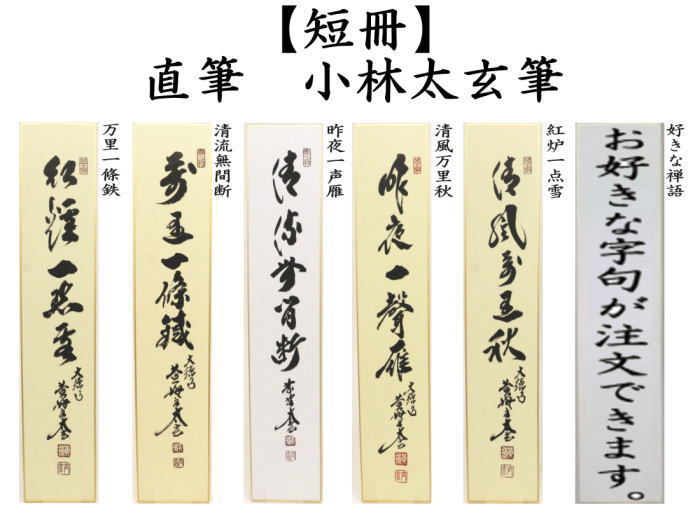 【短冊】
直筆　小林太玄筆
好きな禅語
お好きな字句が注文できます。
紅炉一点雪
清風萬里秋
清風万里秋
昨夜一聲雁
昨夜一声雁
清流無間断
清流無間断
萬里一條鐵
万里一條鉄
紅爐一点雪